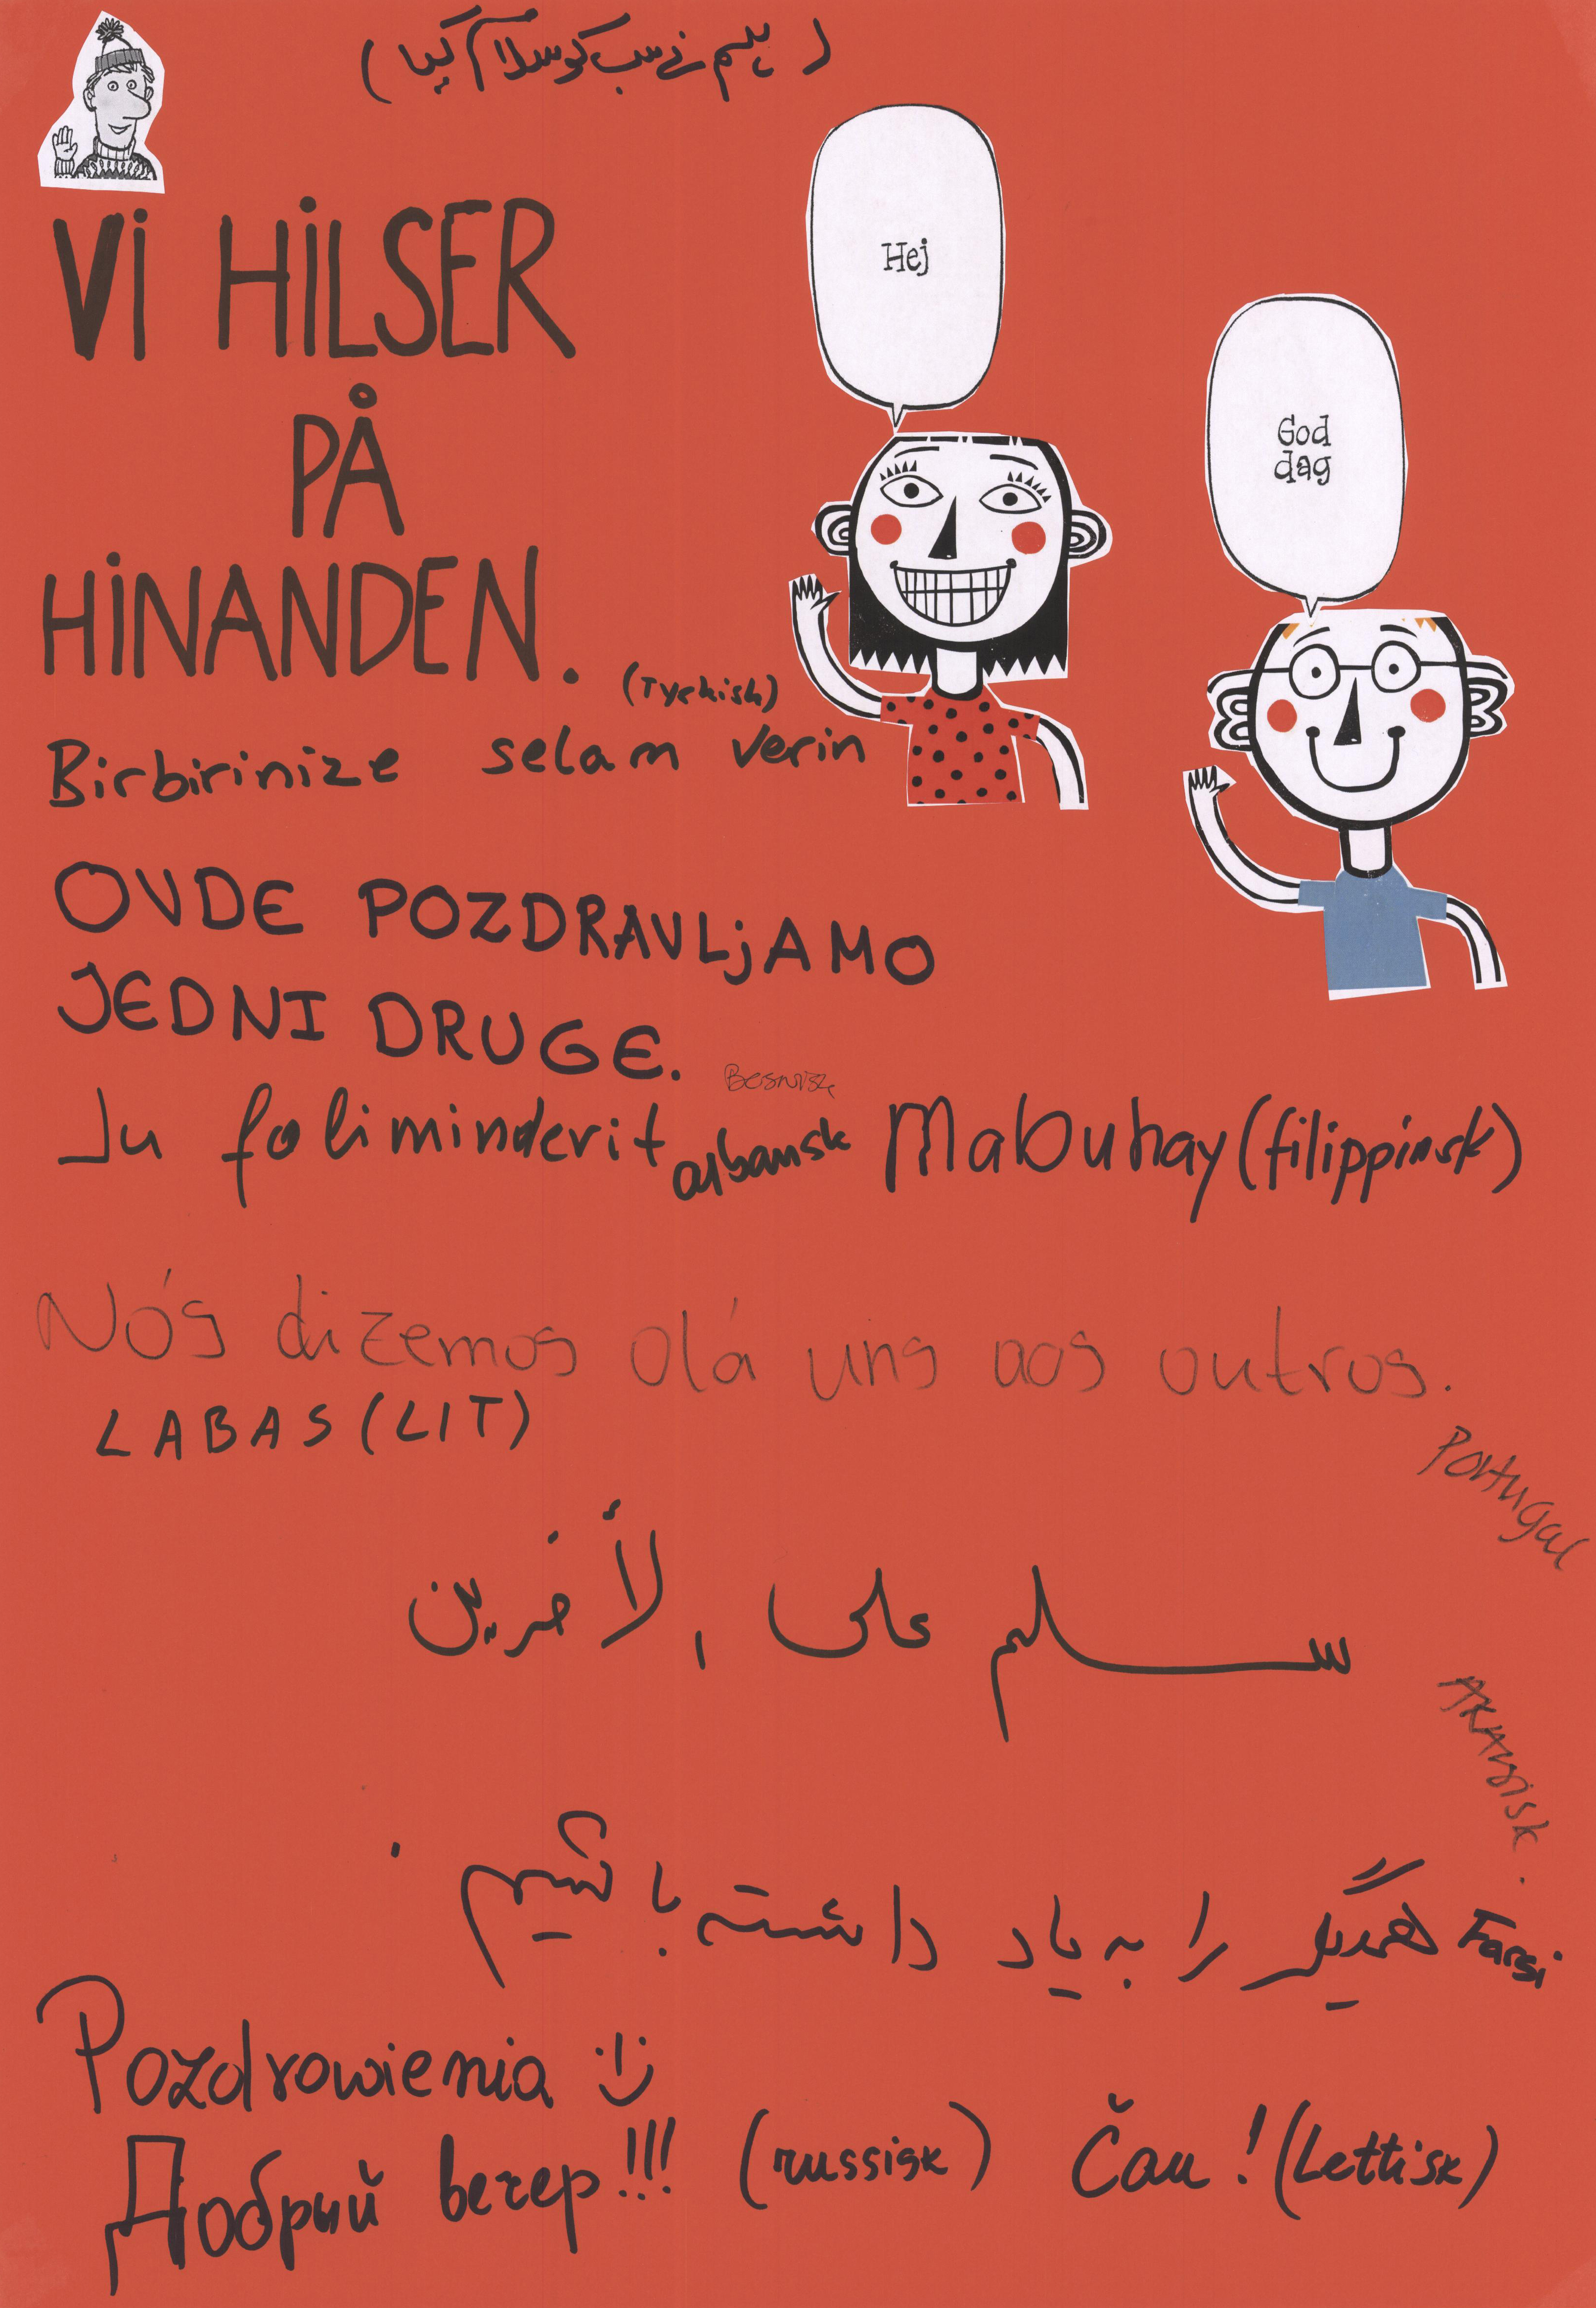 ( ہم نے سب کو سلام کیا )
Hej
God
dag
Vi HiLSER
PÅ
HiNANDEN.
(Tyrkish)
Birbirinize selam verin
OVDE POZDRAVLjAMO
JEDNI DRUGE.
Ju foliminderit albansk Mabuhay (filippinsk)
Nós dizemos olá uns aos outros.
Portugal
LABAS (LIT)
سلم على الأخرين
ARABISK.
Farsi را به یاد داشته باشیم .
Pozdrowienia
Добрый вечер!!! (russisk) Čau! (Lettisk)